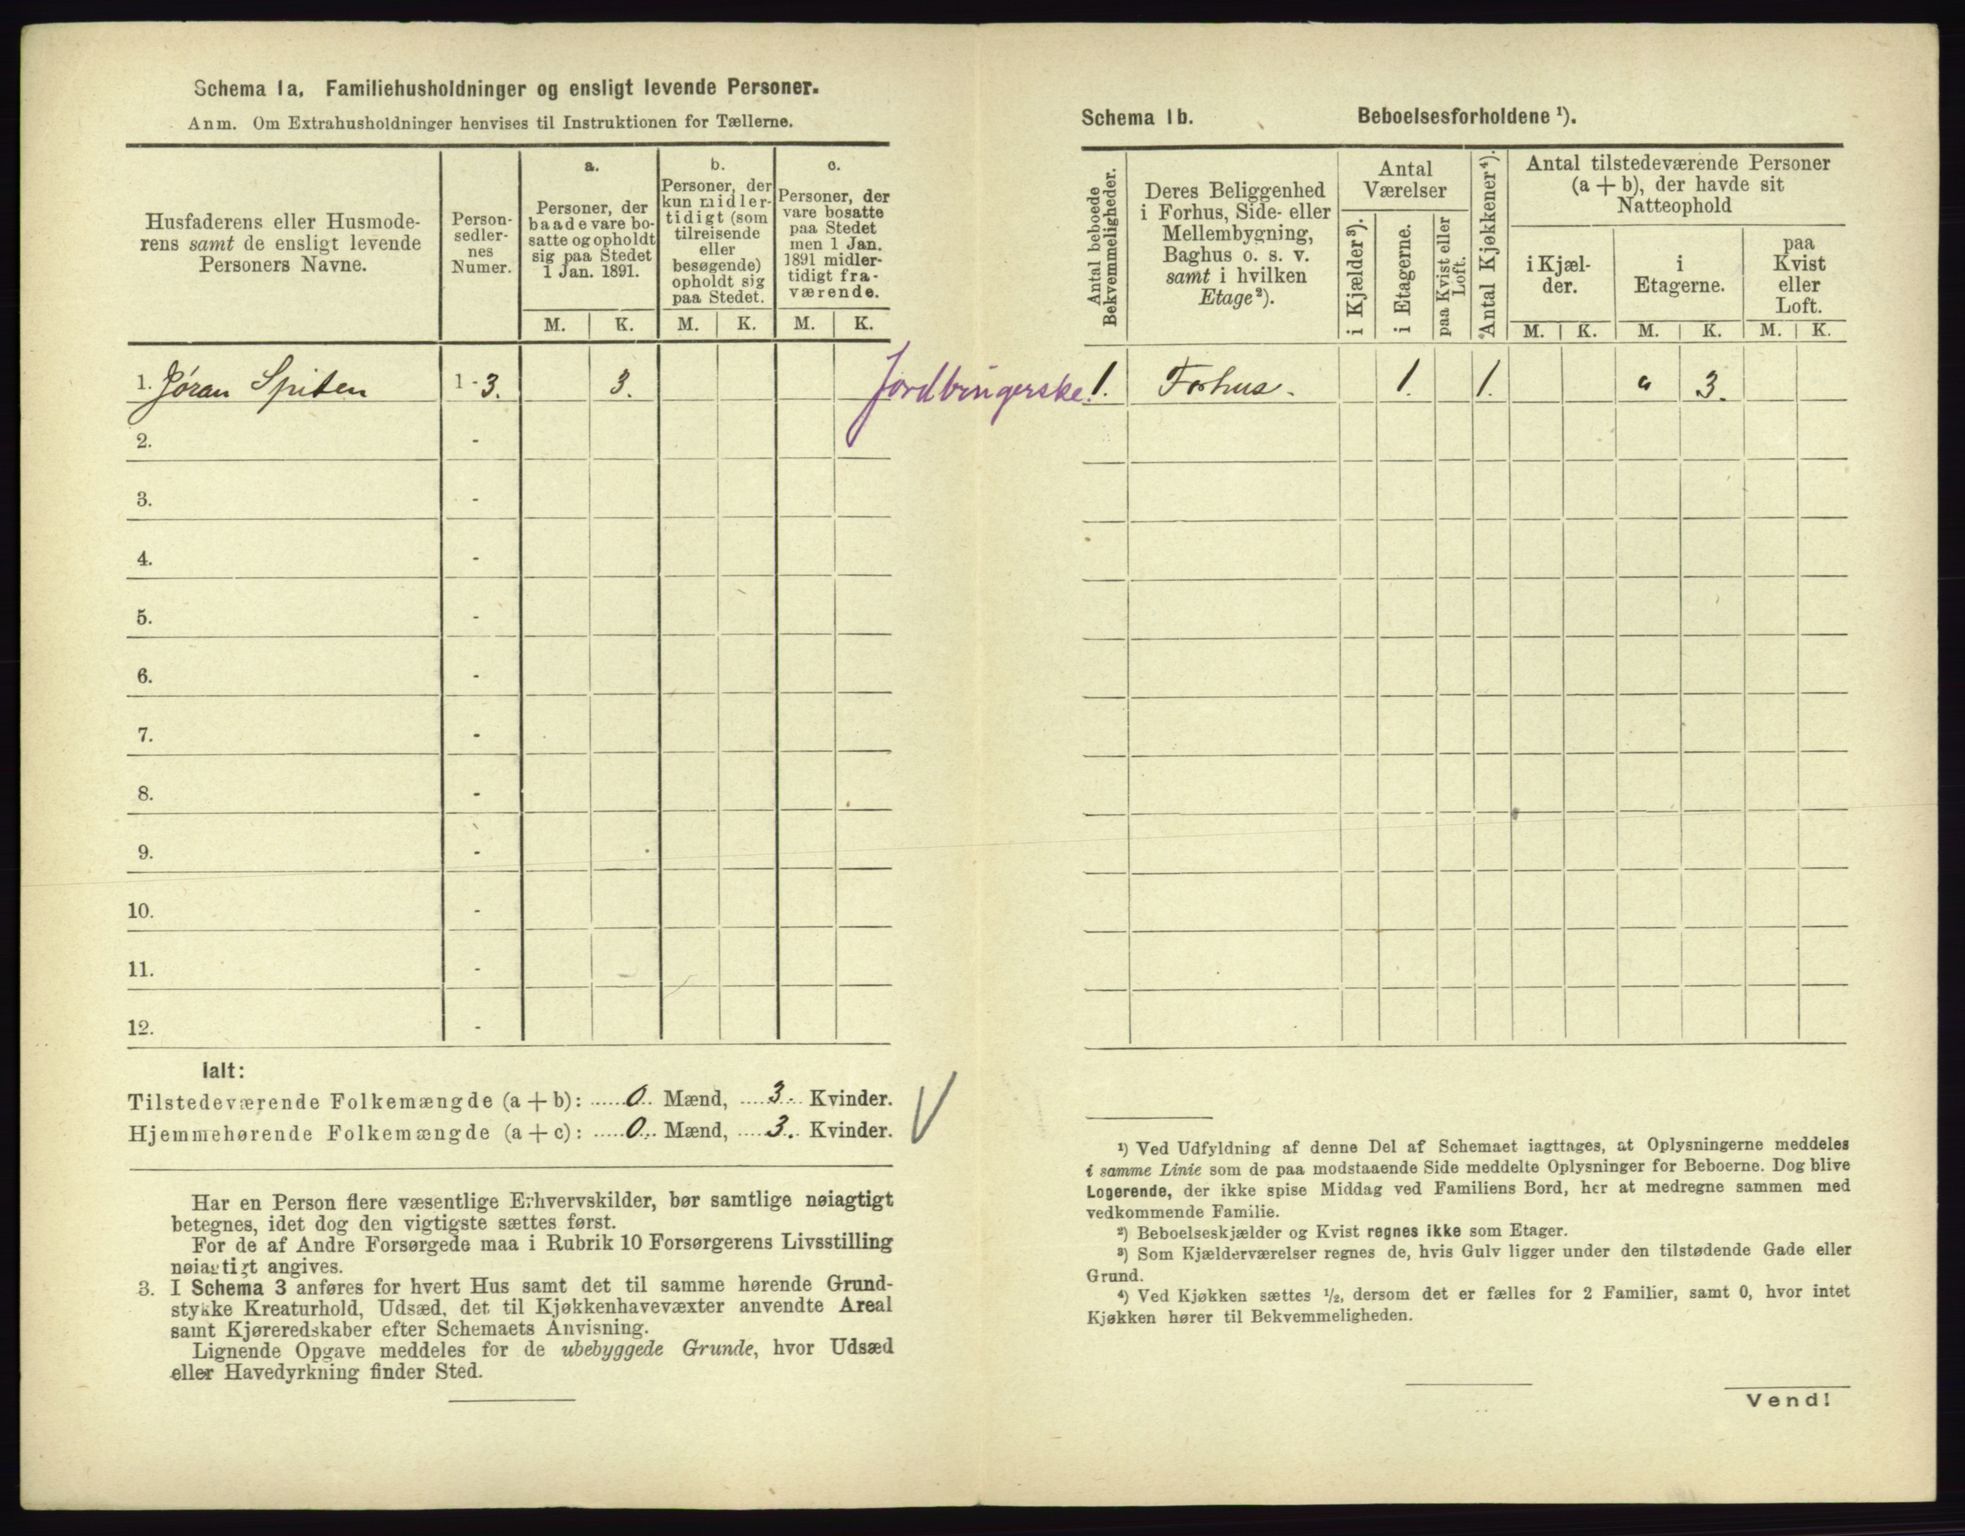 Schema 1a. Familiehusholdninger og ensligt levende Personer.
Anm. Om Extrahusholdninger henvises til Instruktionen for Tællerne.
Husfaderens eller Husmode-
rens samt de ensligt levende
Personers Navne.
Person-
sedler-
nes
Numer.
a.
Personer, der
baade vare bo-
satte og opholdt
sig paa Stedet
1 Jan. 1891.
b.
Personer, der
kun midler-
tidigt (som
tilreisende
eller
besøgende)
opholdt sig
paa Stedet.
c.
Personer, der
vare bosatte
paa Stedet
men 1 Jan.
1891 midler-
tidigt fra-
værende.
M. K. M. K. M. K.
1. Jøran Spiten 1 - 3. 3. Jordbrugerske.
2. -
3. -
4. -
5. -
6. -
7. -
8. -
9. -
10. -
11. -
12. -
Ialt:
Tilstedeværende Folkemængde (a + b): 0 Mænd, 3 Kvinder.
Hjemmehørende Folkemængde (a + c): 0 Mænd, 3. Kvinder.
Har en Person flere væsentlige Erhvervskilder, bør samtlige nøiagtigt
betegnes, idet dog den vigtigste sættes først.
For de af Andre Forsørgede maa i Rubrik 10 Forsørgerens Livsstilling
nøiagtigt angives.
3. I Schema 3 anføres for hvert Hus samt det til samme hørende Grund-
stykke Kreaturhold, Udsæd, det til Kjøkkenhavevæxter anvendte Areal
samt Kjøreredskaber efter Schemaets Anvisning.
Lignende Opgave meddeles for de ubebyggede Grunde, hvor Udsæd
eller Havedyrkning finder Sted.
Schema 1b. Beboelsesforholdene ¹).
Antal beboede
Bekvemmeligheder.
Deres Beliggenhed
i Forhus, Side- eller
Mellembygning,
Baghus o. s. v.
samt i hvilken
Etage²).
Antal
Værelser
i Kjælder³).
i Etagerne.
paa Kvist eller
Loft.
Antal Kjøkkener⁴).
Antal tilstedeværende Personer
(a + b), der havde sit
Natteophold
i Kjæl-
der.
i
Etagerne.
paa
Kvist
eller
Loft.
M. K. M. K. M. K.
1. Forhus. 1. 1. " 3.
¹) Ved Udfyldning af denne Del af Schemaet iagttages, at Oplysningerne meddeles
i samme Linie som de paa modstaaende Side meddelte Oplysninger for Beboerne. Dog blive
Logerende, der ikke spise Middag ved Familiens Bord, her at medregne sammen med
vedkommende Familie.
²) Beboelseskjælder og Kvist regnes ikke som Etager.
³) Som Kjælderværelser regnes de, hvis Gulv ligger under den tilstødende Gade eller
Grund.
⁴) Ved Kjøkken sættes ½, dersom det er fælles for 2 Familier, samt 0, hvor intet
Kjøkken hører til Bekvemmeligheden.
Vend!